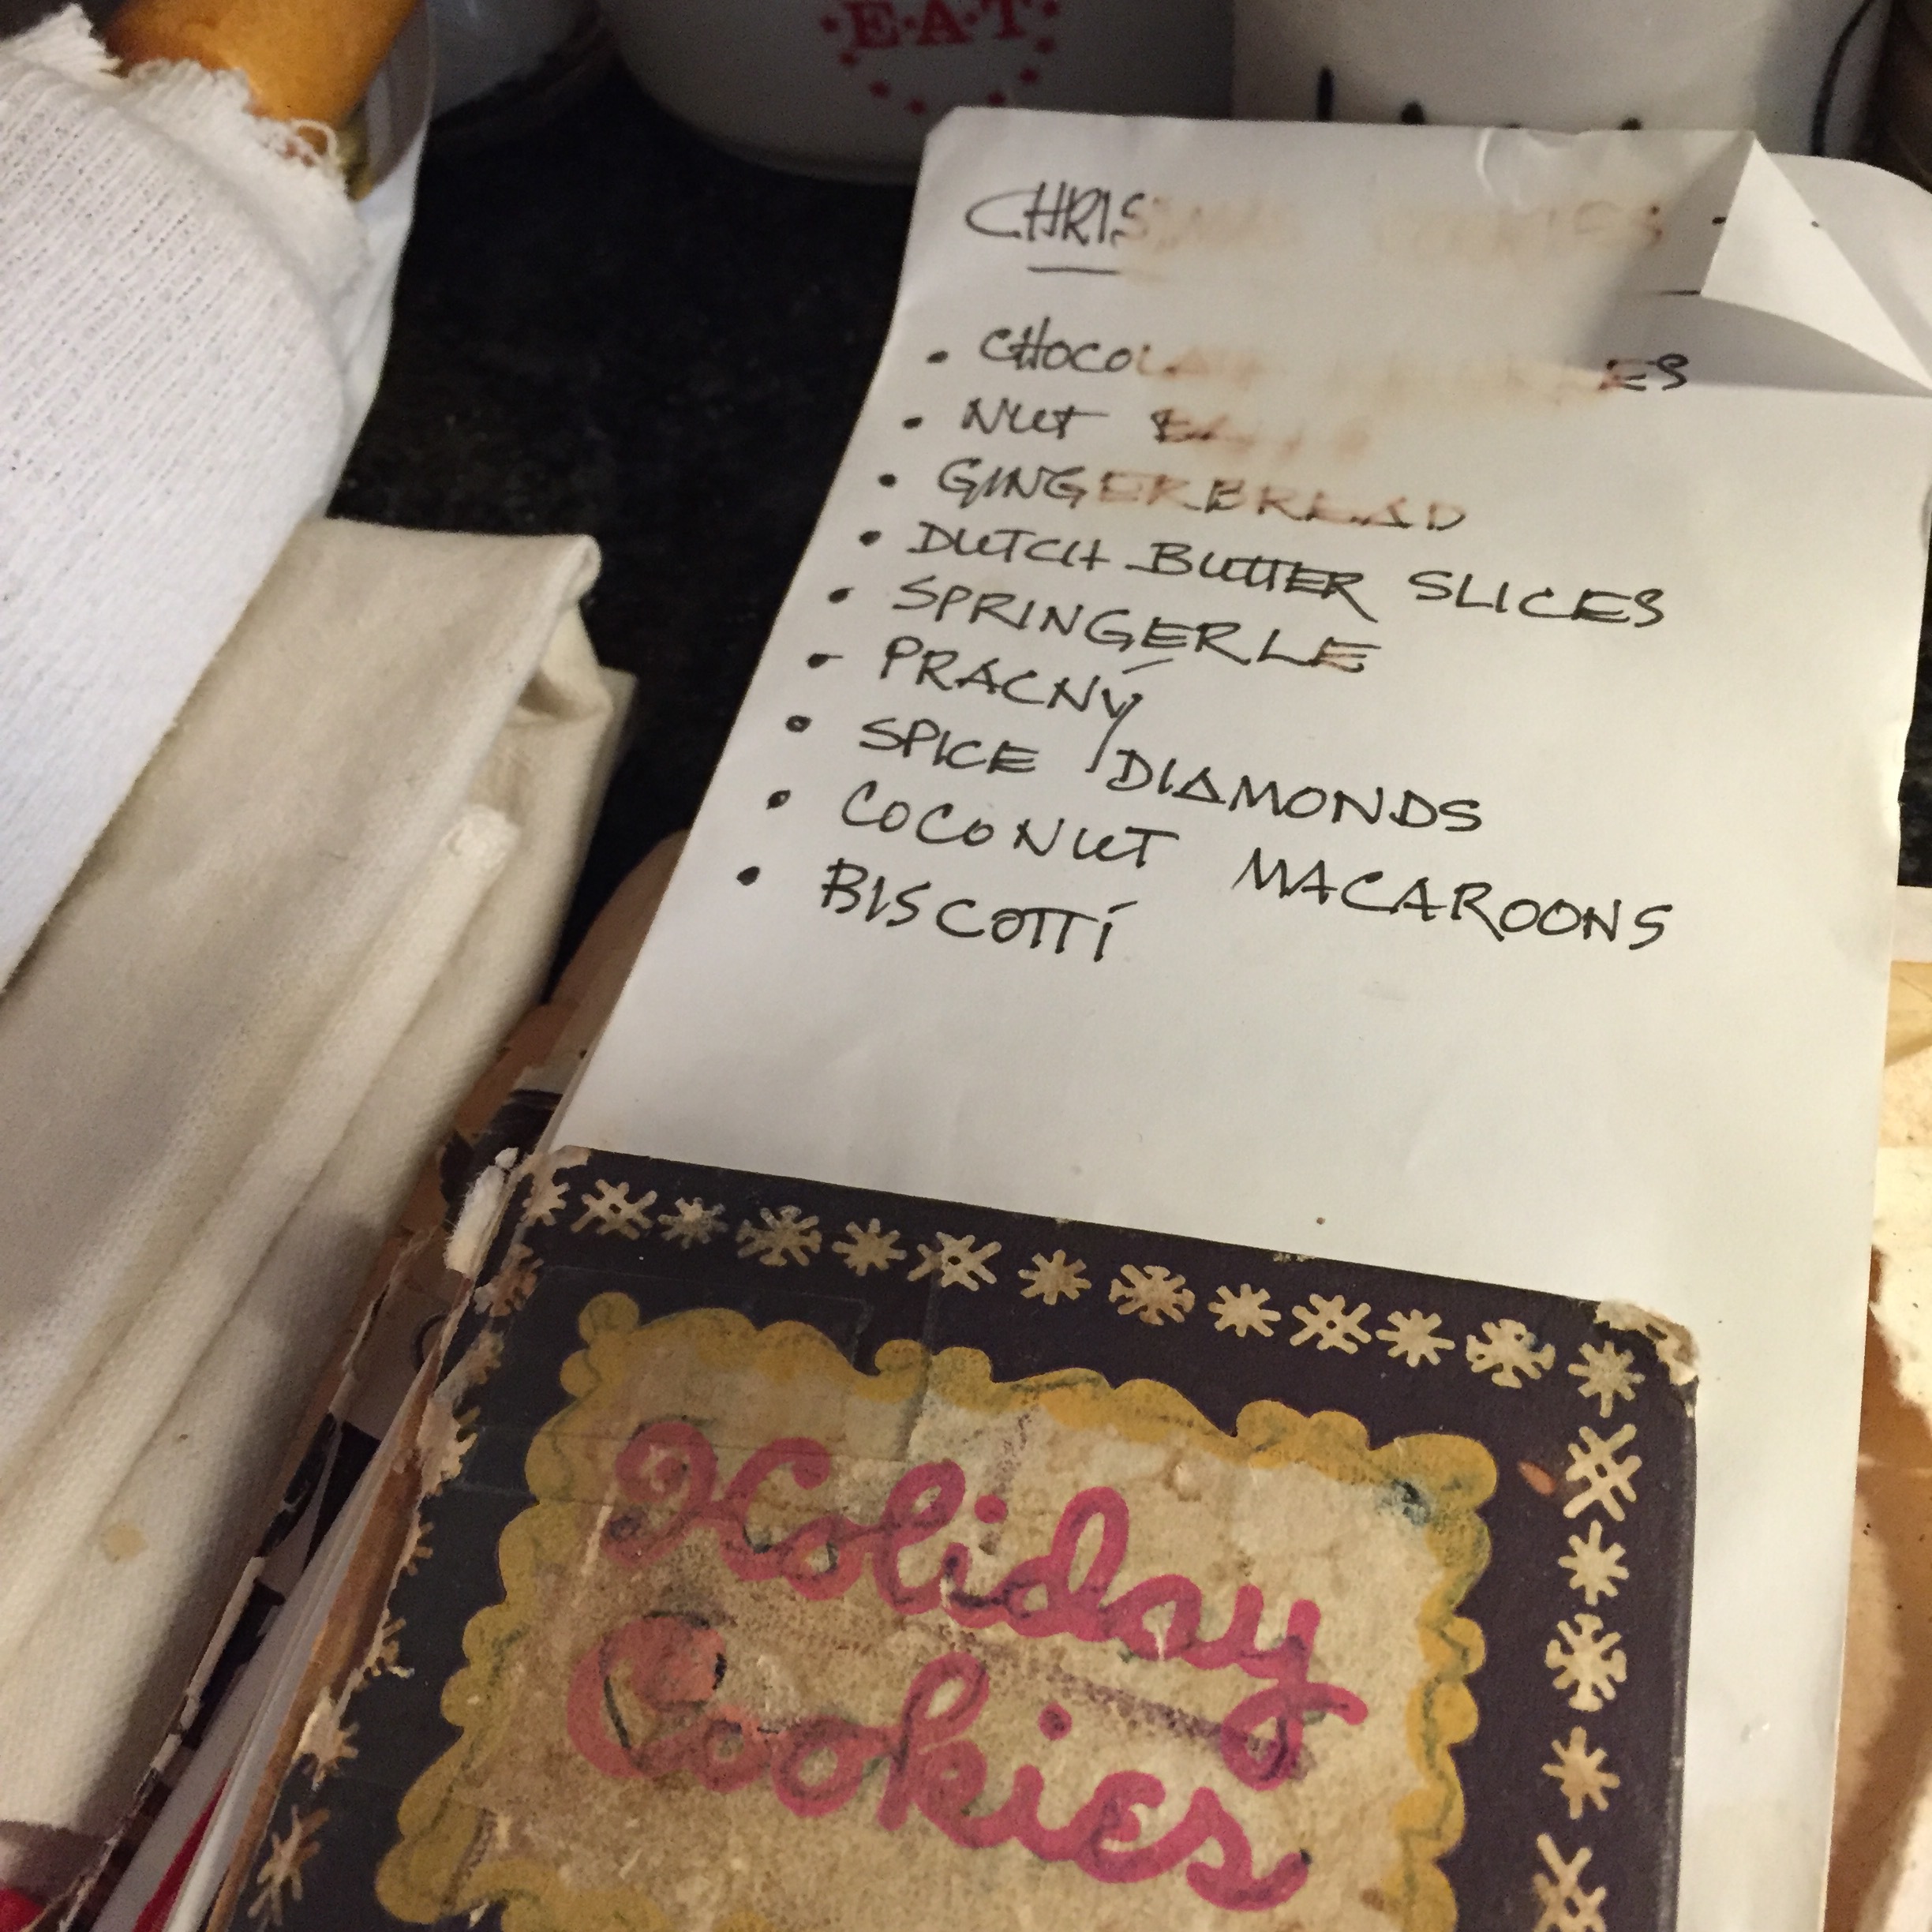 E·A·T
CHRISTMAS COOKIES
• CHOCOLATE
• NUT BALLS
• GINGERBREAD
• DUTCH BUTTER SLICES
• SPRINGERLE
• PRACNÝ
• SPICE DIAMONDS
• COCONUT MACAROONS
• BISCOTTI
Holiday
Cookies